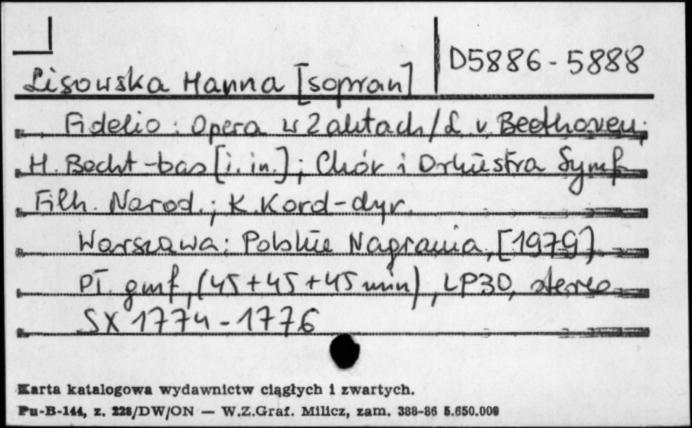 D5886-5888
Lisowska Hanna [sopran]
Fidelio : Opera w 2 aktach / L. v. Beethoven ;
H. Becht - bas [i. in.] ; Chór i Orkiestra Symf.
Filh. Narod. ; K. Kord - dyr.
Warszawa : Polskie Nagrania, [1979]
Pł. gmf, (45+45+45 min), LP30, stereo
SX 1774-1776
Karta katalogowa wydawnictw ciągłych i zwartych.
Pu-B-144, z. 228/DW/ON — W.Z.Graf. Milicz, zam. 388-86 5.650.000